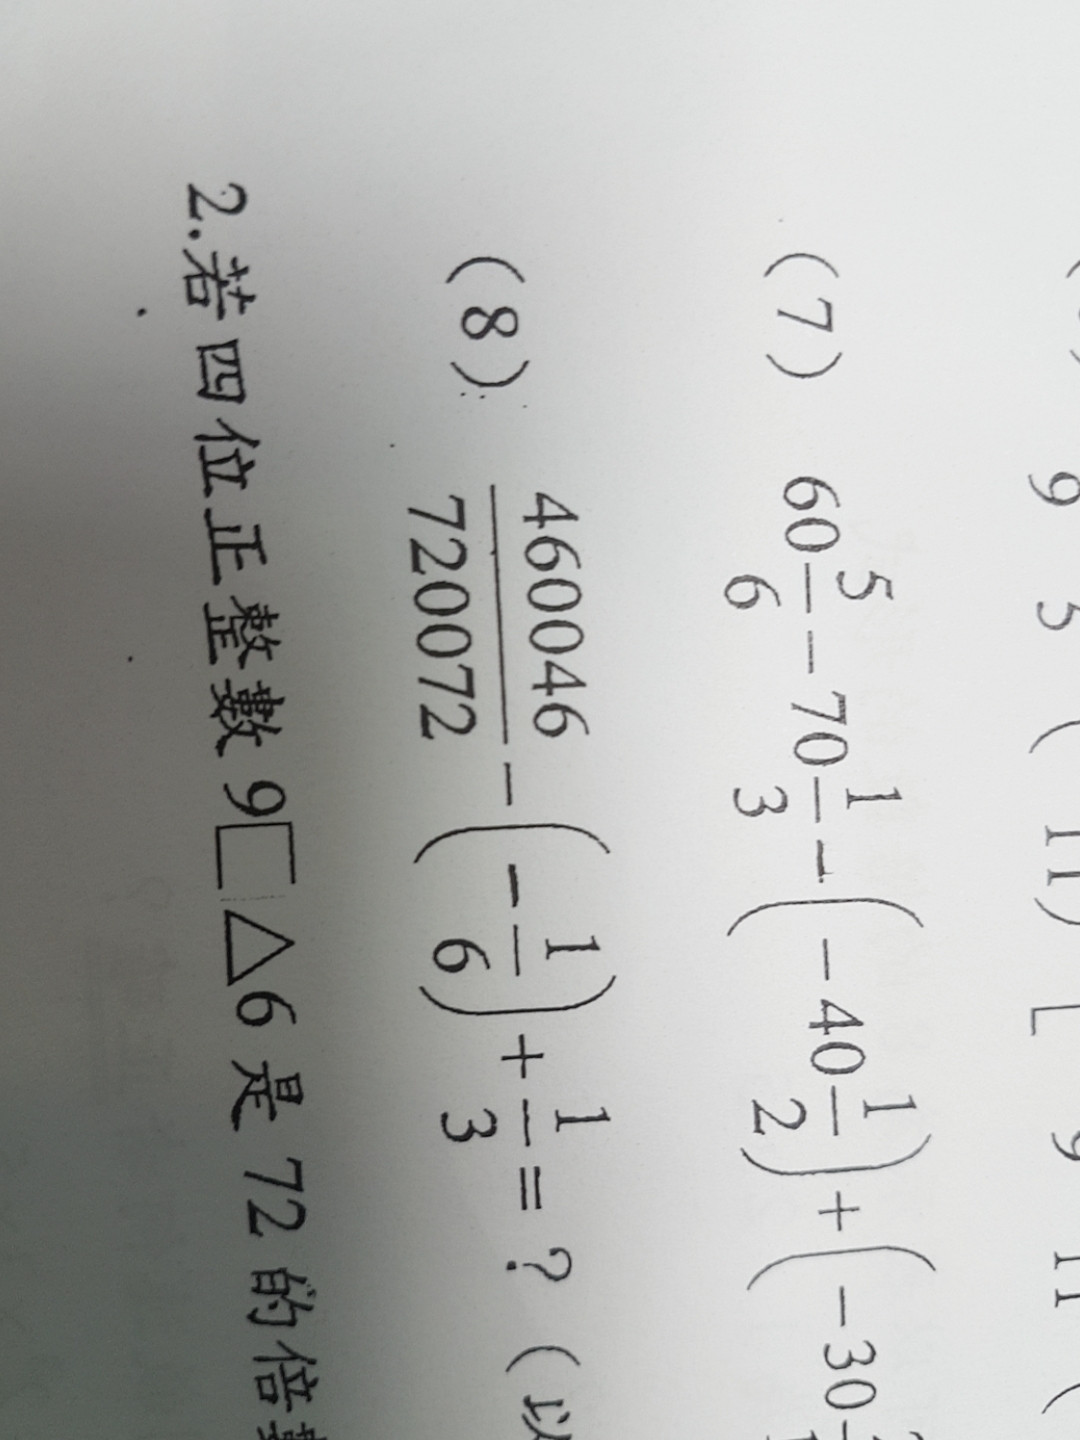 9 5 ( 11 ) [ 9 11 (
(7) 60 5/6 - 70 1/3 - ( - 40 1/2 ) + ( - 30
(8) 460046/720072 - ( - 1/6 ) + 1/3 = ? (以
2.若四位正整數9□△6是72的倍